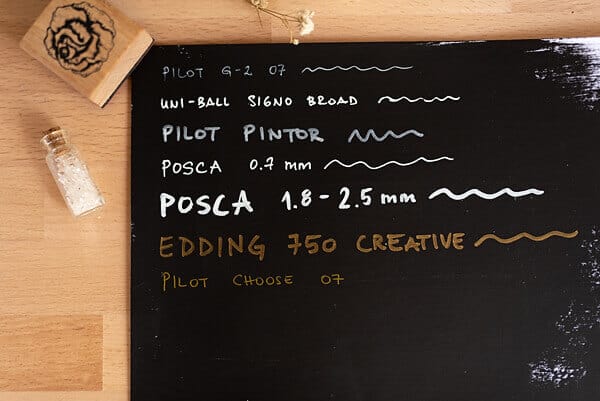 PILOT G-2 07
UNI-BALL SIGNO BROAD
PILOT PINTOR
POSCA 0.7 mm
POSCA 1.8-2.5 mm
EDDING 750 CREATIVE
PILOT CHOOSE 07